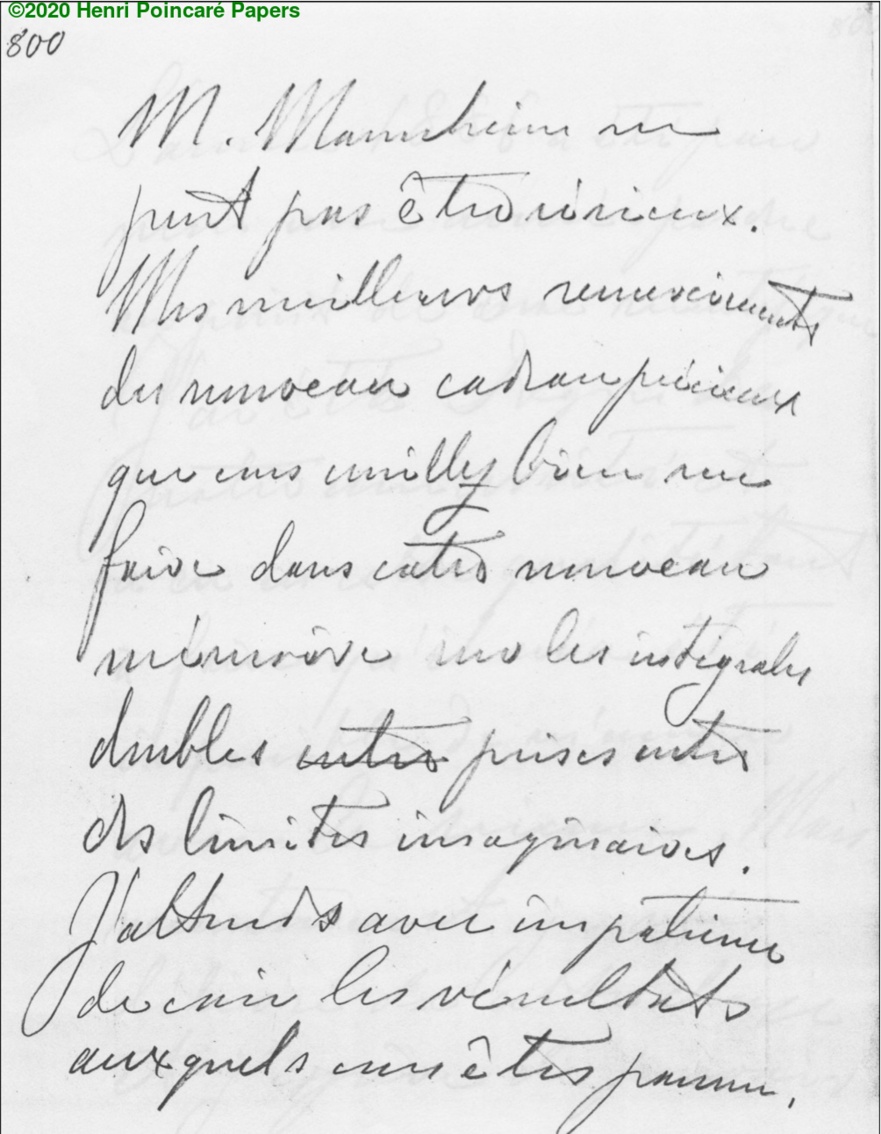 ©2020 Henri Poincaré Papers
800
M. Mannheim ne
peut pas être sérieux.
Mes meilleurs remerciments
du nouveau cadeau précieux
que vous voulez bien me
faire dans votre nouveau
mémoire sur les intégrales
doubles entre prises entre
des limites imaginaires.
J'attends avec impatience
de voir les résultats
auxquels vous êtes parvenu.